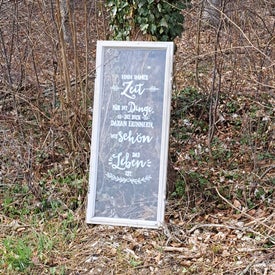 NIMM IMMER
Zeit
FÜR DIE Dinge,
DIE DICH
DARAN ERINNERN,
WIE schön
DAS
Leben
IST.